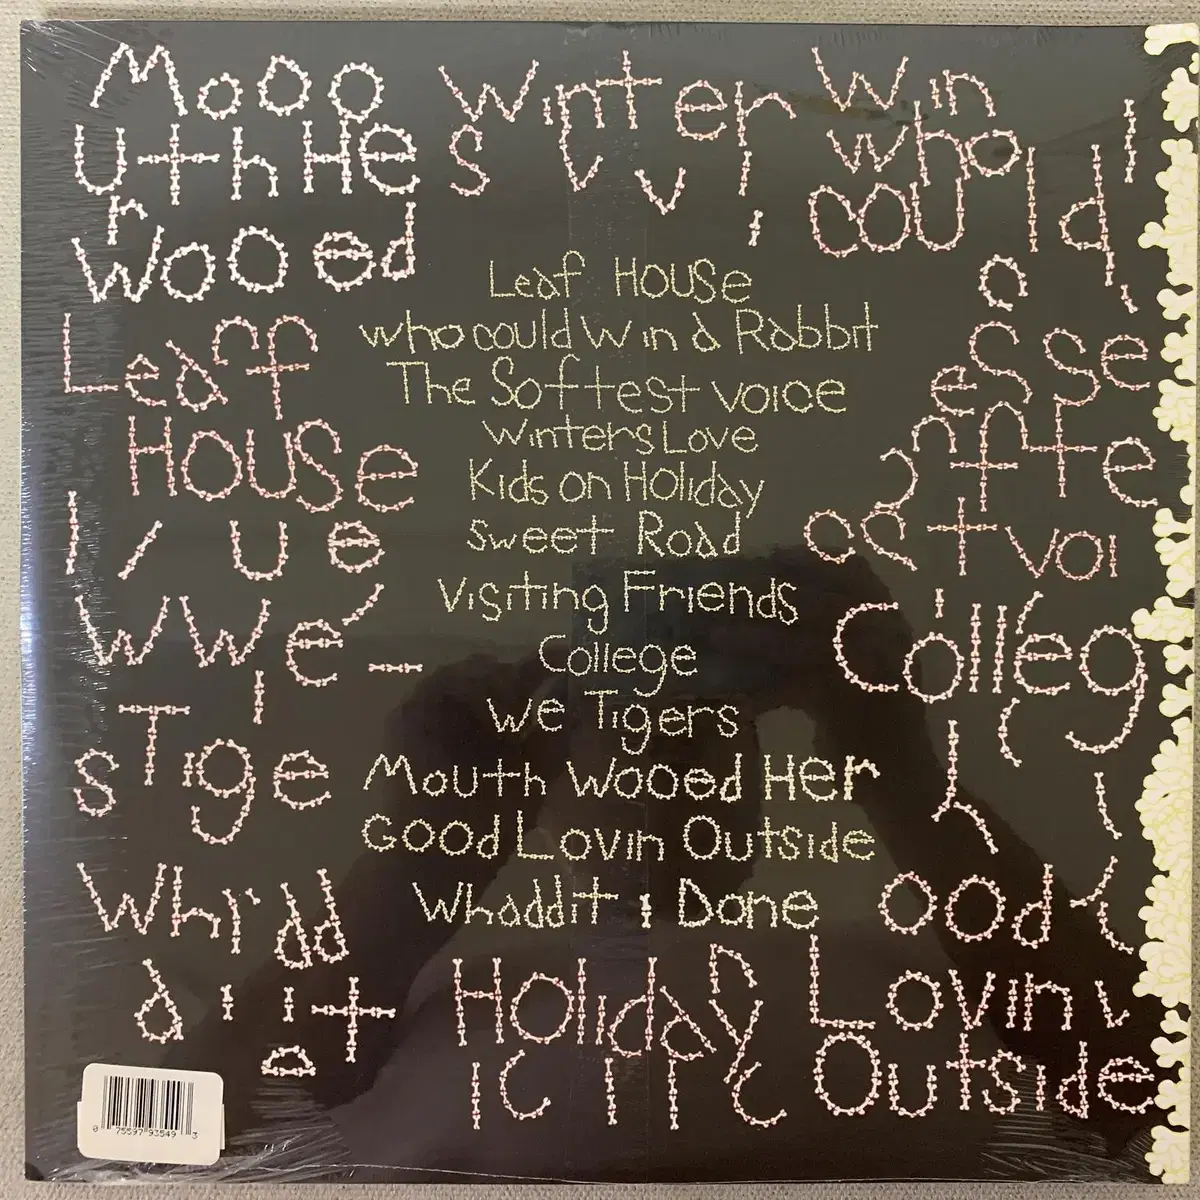 Mooo Winter Win
uth He s v v i who
r wooed i could a
Leaf House
who could Win a Rabbit
The Softest voice
Winters Love
Kids on Holiday
Sweet Road
Visiting Friends
College
We Tigers
Mouth Wooed Her
Good Lovin Outside
Whaddit i Done
Leaf
House
ue
WWe
s Tige
Whrdd
a i it
esse
ffte
st voi
Colleg
ood
Holiday Lovin
Outside
0 75597 93549 3